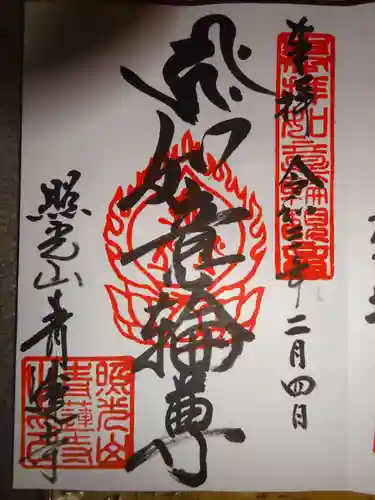 奉拝
令和三年二月四日
如意輪尊
照光山
青蓮寺
照光山
青蓮寺